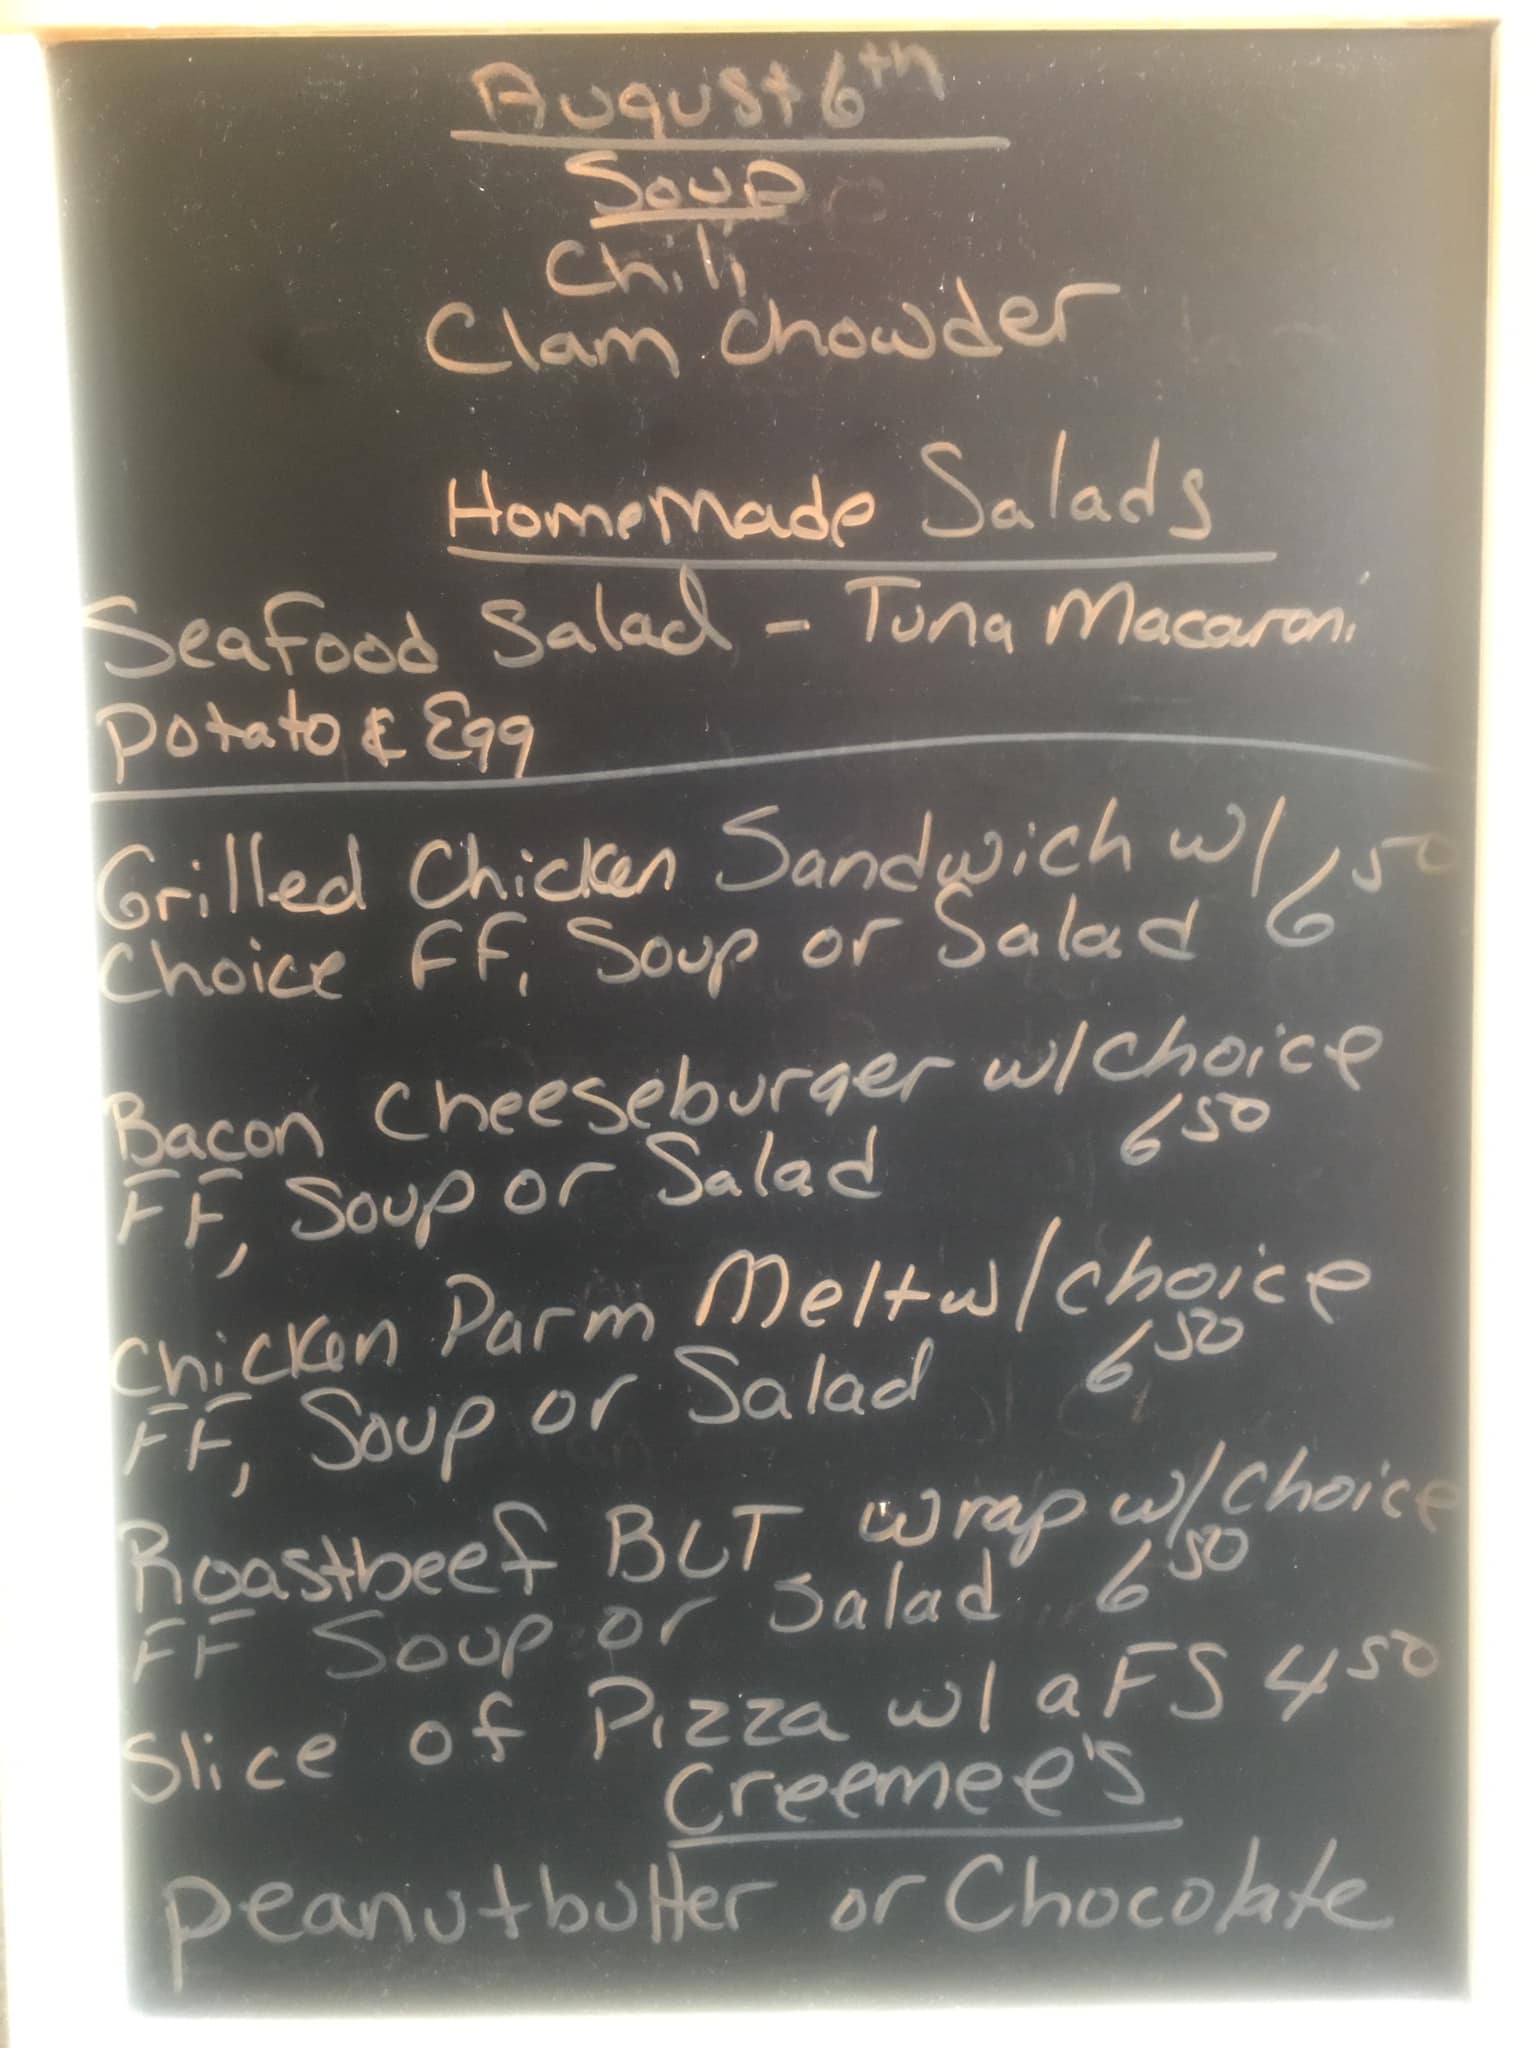 August 6th
Soup
Chili
Clam Chowder
Homemade Salads
Seafood Salad - Tuna Macaroni
Potato & Egg
Grilled Chicken Sandwich w/ 6 50
Choice FF, Soup or Salad
Bacon Cheeseburger w/choice
FF, Soup or Salad 6 50
Chicken Parm Melt w/choice
FF, Soup or Salad 6 50
Roastbeef BLT wrap w/choice
FF Soup or Salad 6 50
Slice of Pizza w/ a FS 4 50
Creemee's
Peanutbutter or Chocolate